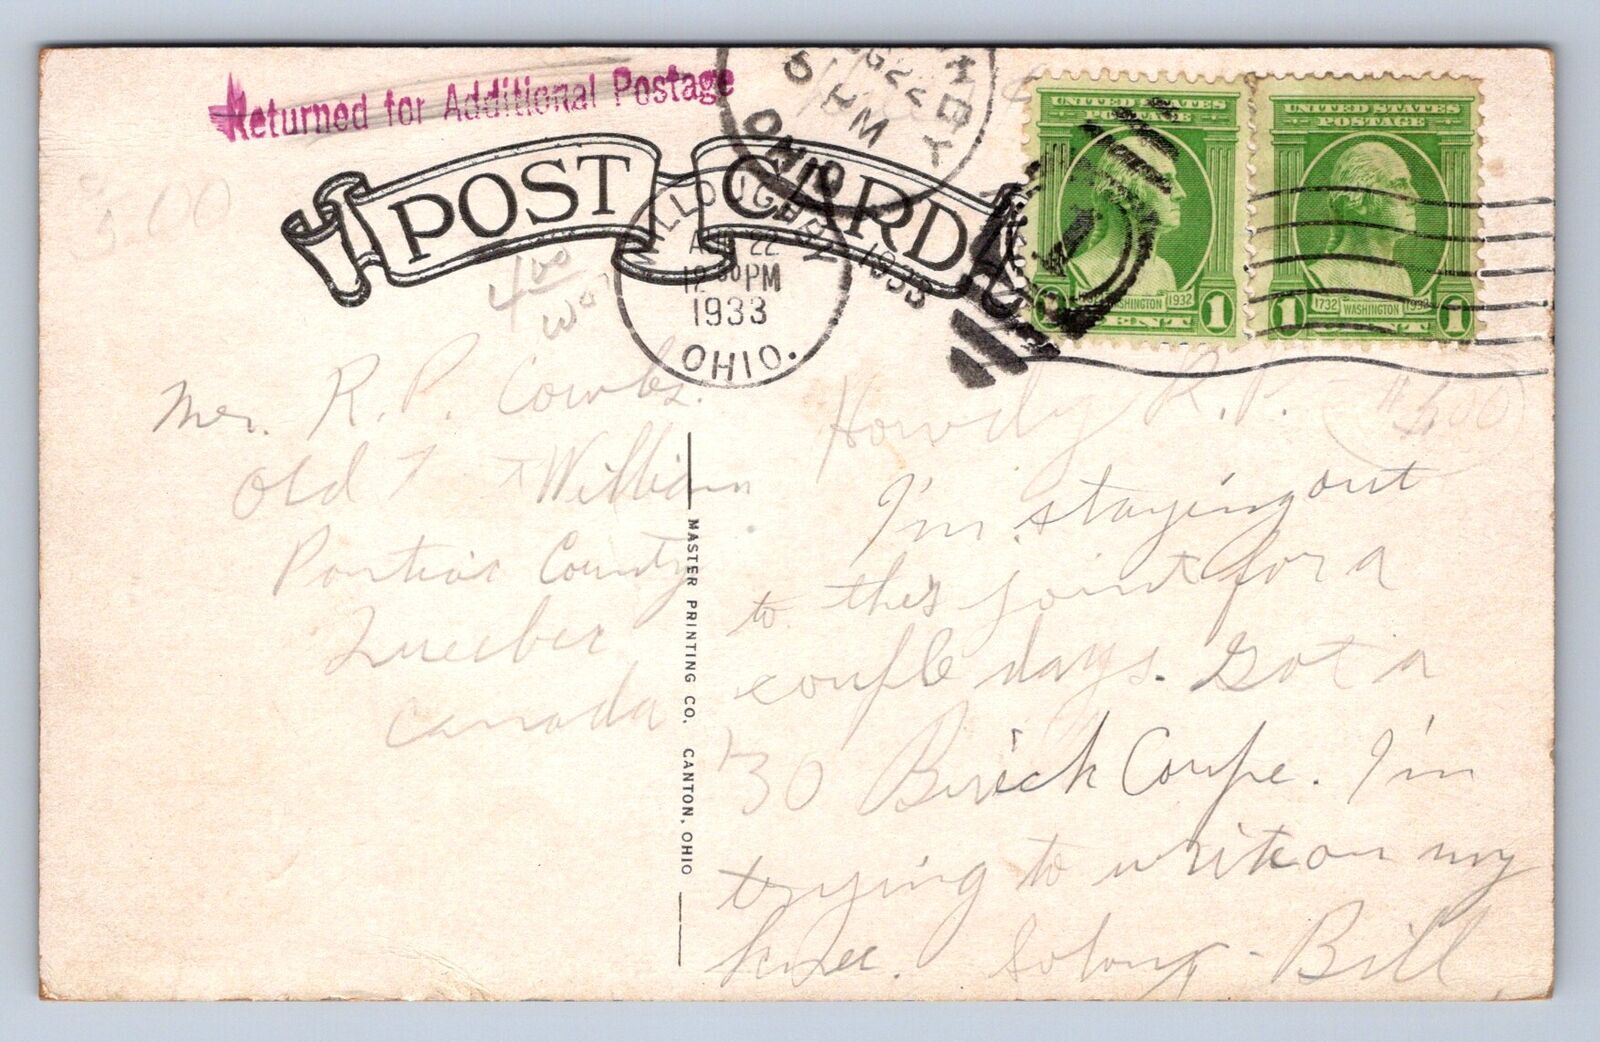 Returned for Additional Postage
POST CARD
WILLOUGHBY
AUG 22
12 30 PM
1933
OHIO.
G 22
5 PM
1933
OHIO
UNITED STATES
POSTAGE
WASHINGTON 1932
1 CENT 1
UNITED STATES
POSTAGE
1732 WASHINGTON 1932
1 CENT 1
5.00
4 00
Mr. R. P. Combs.
Old Fort William
Pontiac County
Queebec
Canada
MASTER PRINTING CO. CANTON, OHIO
Howdy R.P. -
I'm staying out
to this joint for a
couple days. Got a
'30 Buick Coupe. I'm
trying to write on my
knee. So long - Bill